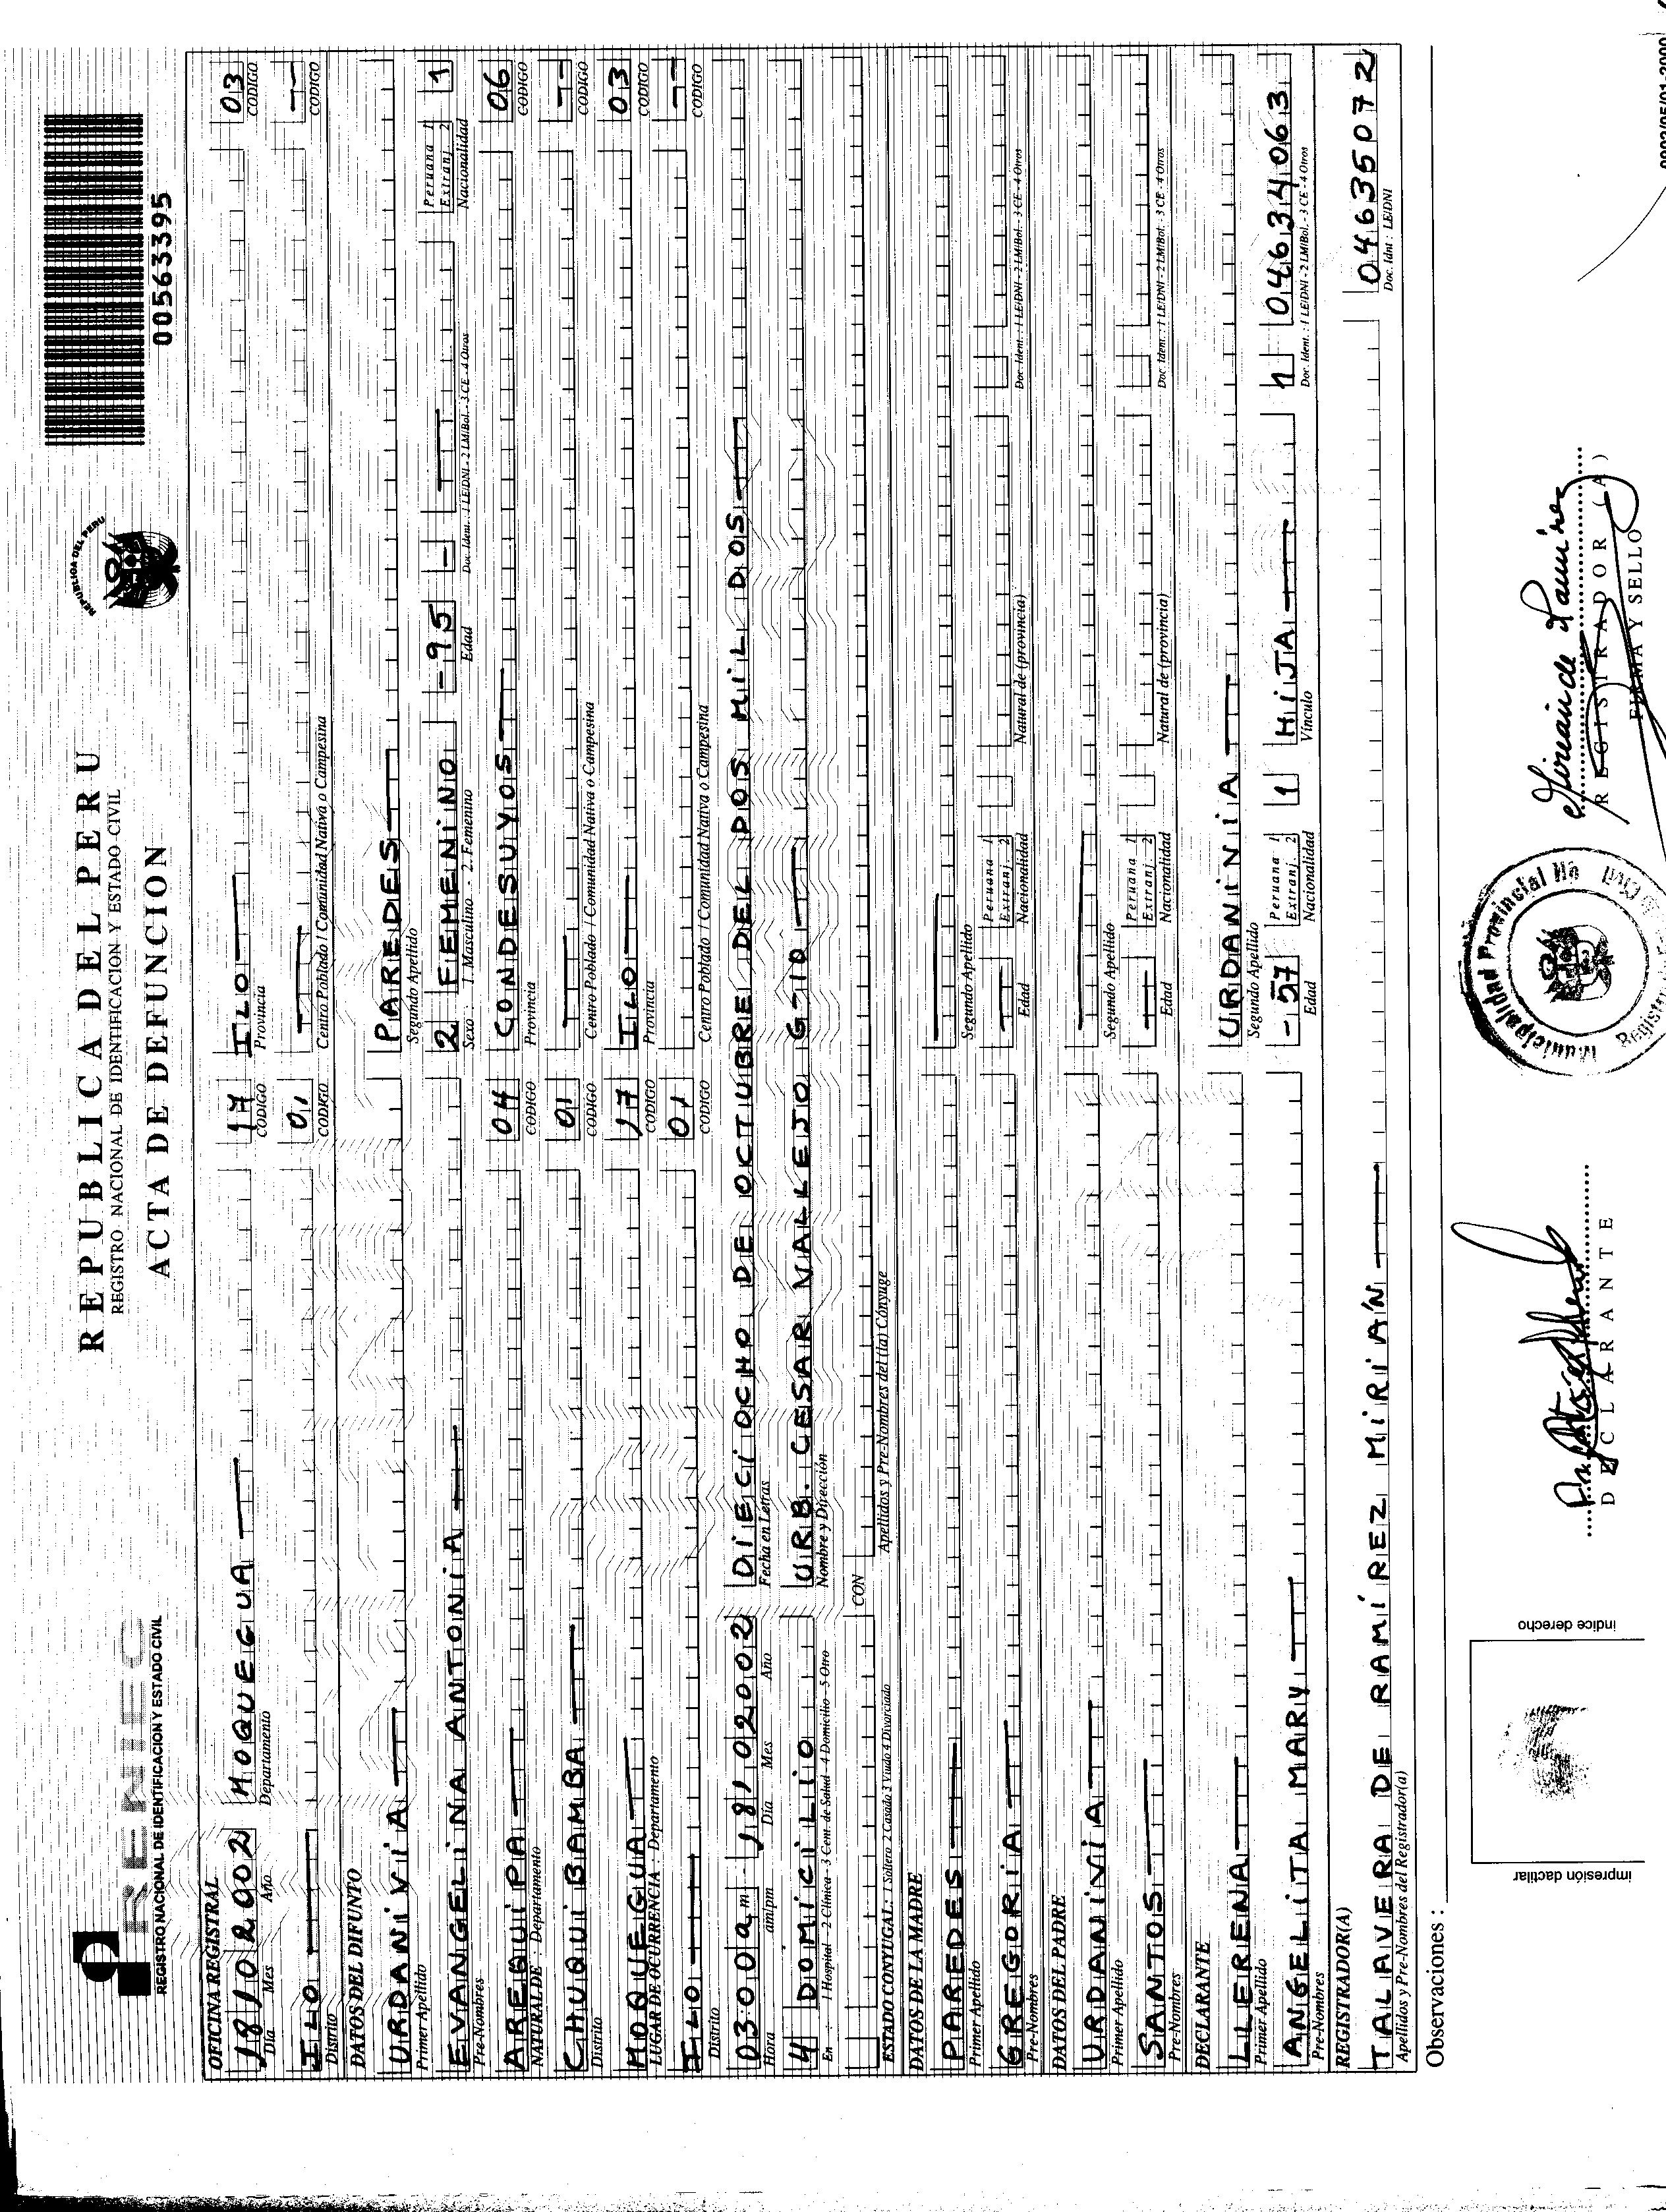 RENIEC
REGISTRO NACIONAL DE IDENTIFICACION Y ESTADO CIVIL
REPUBLICA DEL PERU
REGISTRO NACIONAL DE IDENTIFICACION Y ESTADO CIVIL
ACTA DE DEFUNCION
REPUBLICA DEL PERU
00563395
OFICINA REGISTRAL
18 10 2002 MOQUEGUA 17 ILO 03
Día Mes Año Departamento CODIGO Provincia CODIGO
ILO 01 --
Distrito CODIGO Centro Poblado / Comunidad Nativa o Campesina CODIGO
DATOS DEL DIFUNTO
URDANIVIA PAREDES
Primer Apellido Segundo Apellido
EVANGELINA ANTONIA 2 FEMENINO -95 - Peruana 1 Extranj. 2 1
Pre-Nombres Sexo : 1 Masculino - 2. Femenino Edad Doc. Ident. : 1 LE/DNI - 2 LM/Bol. - 3 CE - 4 Otros Nacionalidad
AREQUIPA 04 CONDESUYOS 06
NATURAL DE : Departamento CODIGO Provincia CODIGO
CHUQUIBAMBA 01 --
Distrito CODIGO Centro Poblado / Comunidad Nativa o Campesina CODIGO
MOQUEGUA 17 ILO 03
LUGAR DE OCURRENCIA : Departamento CODIGO Provincia CODIGO
ILO 01 --
Distrito CODIGO Centro Poblado / Comunidad Nativa o Campesina CODIGO
03:00 am 18 10 2002 DIECIOCHO DE OCTUBRE DEL DOS MIL DOS
Hora am/pm Día Mes Año Fecha en Letras
4 DOMICILIO URB. CESAR VALLEJO G-10
En : 1 Hospital - 2 Clínica - 3 Cent. de Salud - 4 Domicilio - 5 Otro Nombre y Dirección
CON
ESTADO CONYUGAL: 1 Soltero 2 Casado 3 Viudo 4 Divorciado Apellidos y Pre-Nombres del (la) Cónyuge
DATOS DE LA MADRE
PAREDES
Primer Apellido Segundo Apellido
GREGORIA Peruana 1 Extranj. 2
Pre-Nombres Edad Nacionalidad Natural de (provincia) Doc. Ident. : 1 LE/DNI - 2 LM/Bol. - 3 CE - 4 Otros
DATOS DEL PADRE
URDANIVIA
Primer Apellido Segundo Apellido
SANTOS Peruana 1 Extranj. 2
Pre-Nombres Edad Nacionalidad Natural de (provincia) Doc. Ident. : 1 LE/DNI - 2 LM/Bol. - 3 CE - 4 Otros
DECLARANTE
LLERENA URDANINIA
Primer Apellido Segundo Apellido
ANGELITA MARY -57 Peruana 1 Extranj. 2 1 HIJA 1 04634063
Pre-Nombres Edad Nacionalidad Vínculo Doc. Ident. : 1 LE/DNI - 2 LM/Bol. - 3 CE - 4 Otros
REGISTRADOR(A)
TALAVERA DE RAMÍREZ MIRIAN 04635072
Apellidos y Pre-Nombres del Registrador(a) Doc. Idnt : LE/DNI
Observaciones :
impresión dactilar
índice derecho
DECLARANTE
Municipalidad Provincial
Mirian de Ramirez
REGISTRADOR (A)
FIRMA Y SELLO